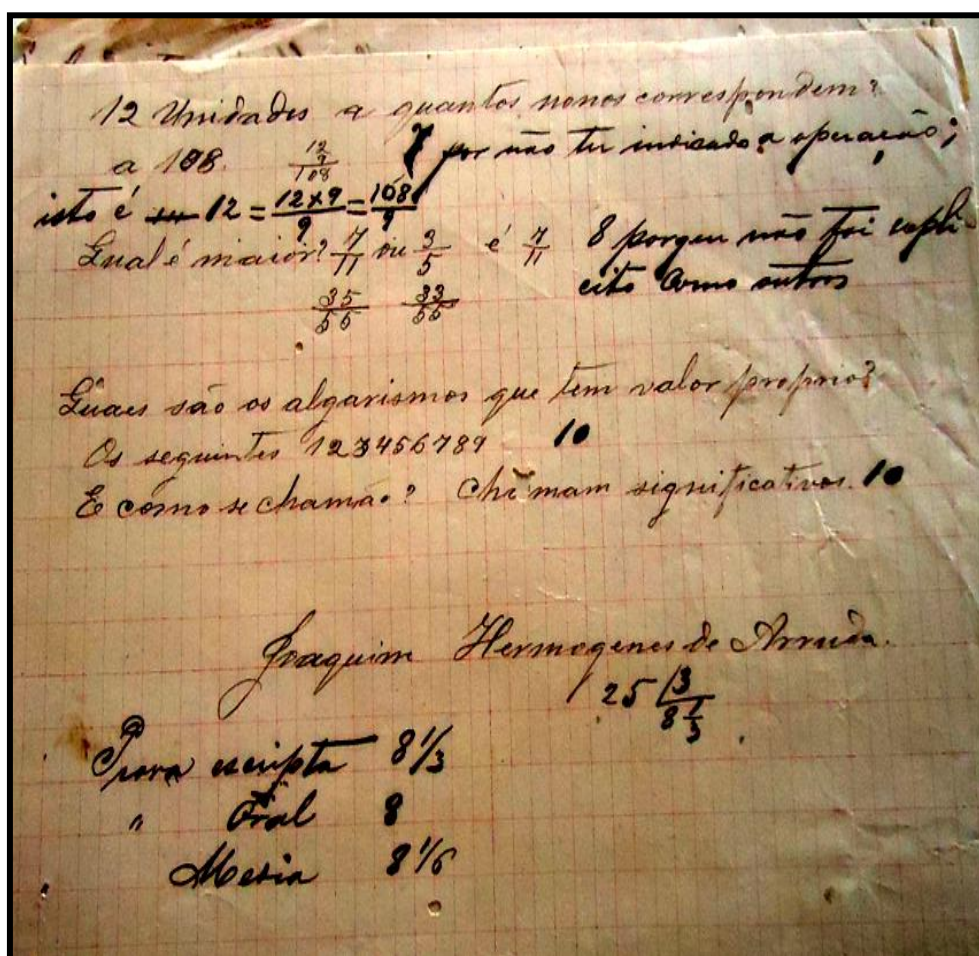 12 Unidades a quantos nonos correspondem?
a 108. 12 9 108 7 por não ter indicado a operação;
isto é 12 = 12×9/9 = 108/9
Qual é maior? 7/11 ou 3/5 é 7/11 8 porque não foi expli-
35/55 33/55 cito como outros
Quaes são os algarismos que tem valor proprio?
Os seguintes 123456789 10
E como se chamão? Chamam significativos. 10
Joaquim Hermogenes de Arruda.
25 3
8 1/3
Prova escripta 8 1/3
" Oral 8
Media 8 1/6